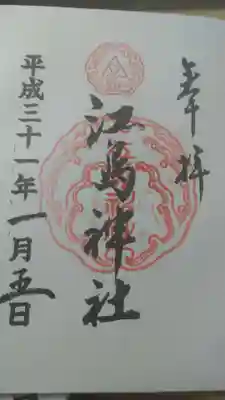 奉拝
江島神社
平成三十一年一月五日